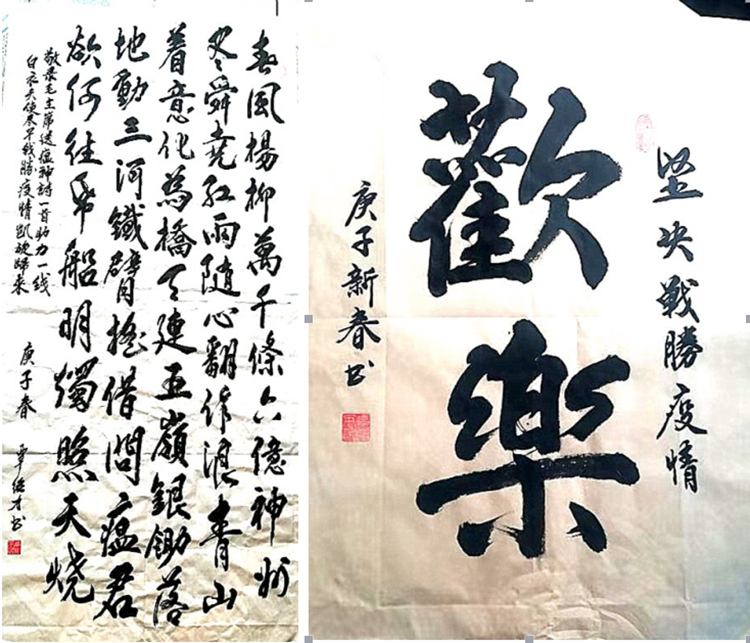 春風揚柳萬千條六億神州
尽舜堯红雨随心翻作浪青山
着意化為橋天連五嶺銀鋤落
地動三河鐵臂摇借問瘟君
欲何往帋船明燭照天烧
敬录毛主席送瘟神詩一首助力一线
白衣天使尽早战勝疫情凯旋歸来
庚子春 覃 才书
坚决戰勝疫情
歡樂
庚子新春书